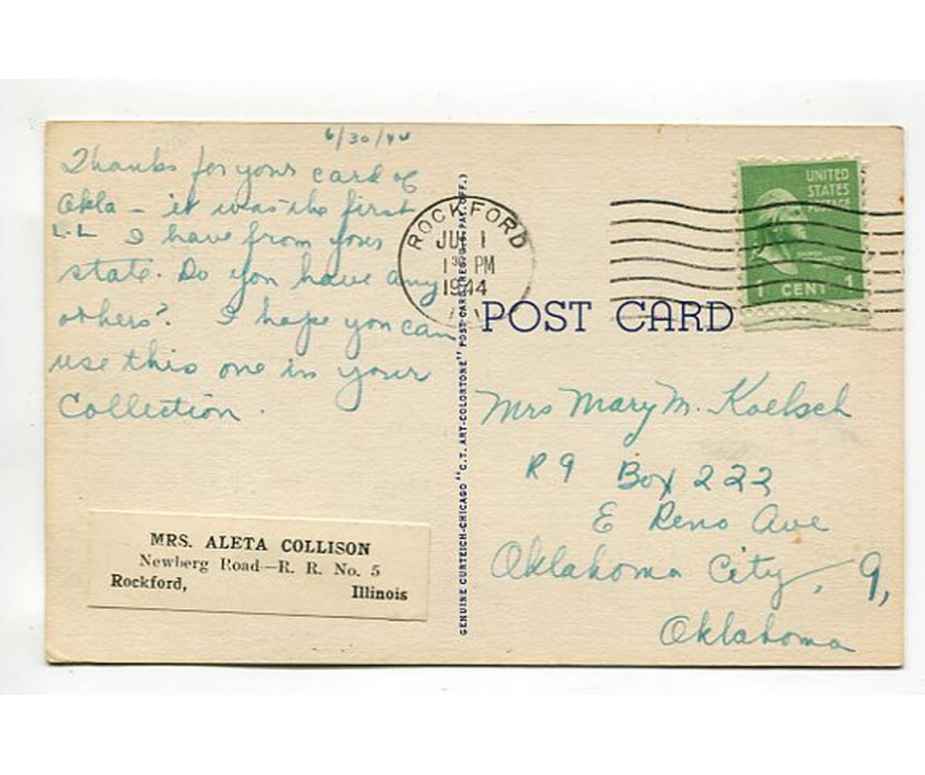 6/30/44
Thanks for your card of
Okla - it was the first
L-L I have from your
state. Do you have any
others? I hope you can
use this one in your
Collection.
MRS. ALETA COLLISON
Newberg Road—R. R. No. 5
Rockford, Illinois
GENUINE CURTEICH-CHICAGO "C.T. ART-COLORTONE" POST CARD (REG. U.S. PAT. OFF.)
ROCKFORD
JUL 1
1 30 PM
1944
ILL
POST CARD
UNITED
STATES
POSTAGE
1 CENT 1
Mrs Mary M. Koelsch
R 9 Box 222
E Reno Ave
Oklahoma City, 9,
Oklahoma